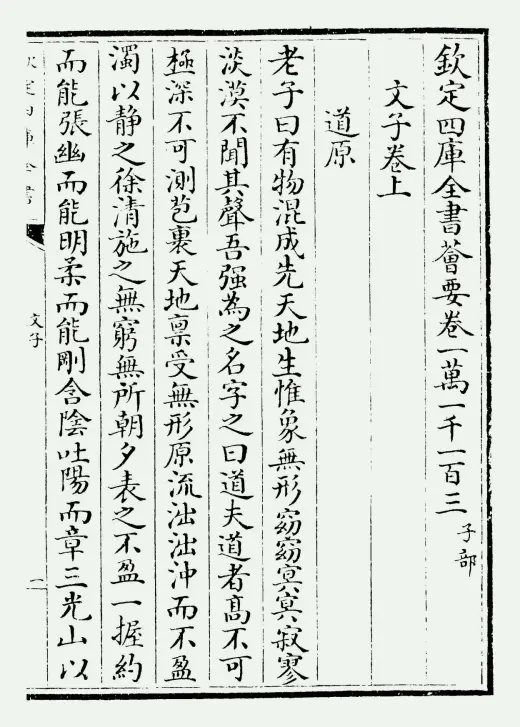 欽定四庫全書薈要卷一萬一千一百三 子部
文子卷上
道原
老子曰有物混成先天地生惟象無形窈窈冥冥寂寥
淡漠不聞其聲吾强為之名字之曰道夫道者髙不可
極深不可測苞裹天地禀受無形原流泏泏沖而不盈
濁以静之徐清施之無窮無所朝夕表之不盈一握約
而能張幽而能明柔而能剛含陰吐陽而章三光山以
文子